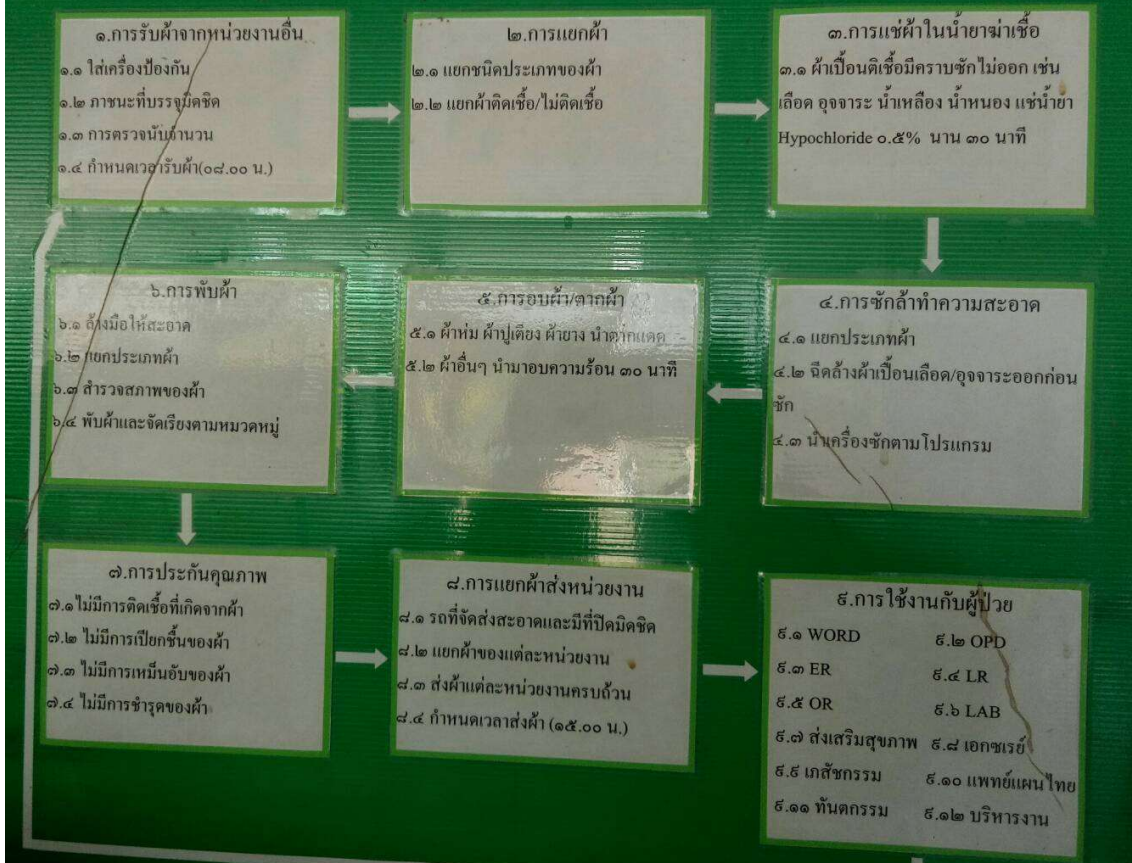 ๑.การรับผ้าจากหน่วยงานอื่น
๑.๑ ใส่เครื่องป้องกัน
๑.๒ ภาชนะที่บรรจุมิดชิด
๑.๓ การตรวจนับจำนวน
๑.๔ กำหนดเวลารับผ้า(๐๘.๐๐ น.)
๒.การแยกผ้า
๒.๑ แยกชนิดประเภทของผ้า
๒.๒ แยกผ้าติดเชื้อ/ไม่ติดเชื้อ
๓.การแช่ผ้าในน้ำยาฆ่าเชื้อ
๓.๑ ผ้าเปื้อนติเชื้อมีคราบซักไม่ออก เช่น
เลือด อุจจาระ น้ำเหลือง น้ำหนอง แช่น้ำยา
Hypochloride ๐.๕% นาน ๓๐ นาที
๔.การซักล้าทำความสะอาด
๔.๑ แยกประเภทผ้า
๔.๒ ฉีดล้างผ้าเปื้อนเลือด/อุจจาระออกก่อน
ซัก
๔.๓ นำเครื่องซักตามโปรแกรม
๕.การอบผ้า/ตากผ้า
๕.๑ ผ้าห่ม ผ้าปูเตียง ผ้ายาง นำตากแดด
๕.๒ ผ้าอื่นๆ นำมาอบความร้อน ๓๐ นาที
๖.การพับผ้า
๖.๑ ล้างมือให้สะอาด
๖.๒ แยกประเภทผ้า
๖.๓ สำรวจสภาพของผ้า
๖.๔ พับผ้าและจัดเรียงตามหมวดหมู่
๗.การประกันคุณภาพ
๗.๑ ไม่มีการติดเชื้อที่เกิดจากผ้า
๗.๒ ไม่มีการเปียกชื้นของผ้า
๗.๓ ไม่มีการเหม็นอับของผ้า
๗.๔ ไม่มีการชำรุดของผ้า
๘.การแยกผ้าส่งหน่วยงาน
๘.๑ รถที่จัดส่งสะอาดและมีที่ปิดมิดชิด
๘.๒ แยกผ้าของแต่ละหน่วยงาน
๘.๓ ส่งผ้าแต่ละหน่วยงานครบถ้วน
๘.๔ กำหนดเวลาส่งผ้า (๑๕.๐๐ น.)
๙.การใช้งานกับผู้ป่วย
๙.๑ WORD ๙.๒ OPD
๙.๓ ER ๙.๔ LR
๙.๕ OR ๙.๖ LAB
๙.๗ ส่งเสริมสุขภาพ ๙.๘ เอกซเรย์
๙.๙ เภสัชกรรม ๙.๑๐ แพทย์แผนไทย
๙.๑๑ ทันตกรรม ๙.๑๒ บริหารงาน